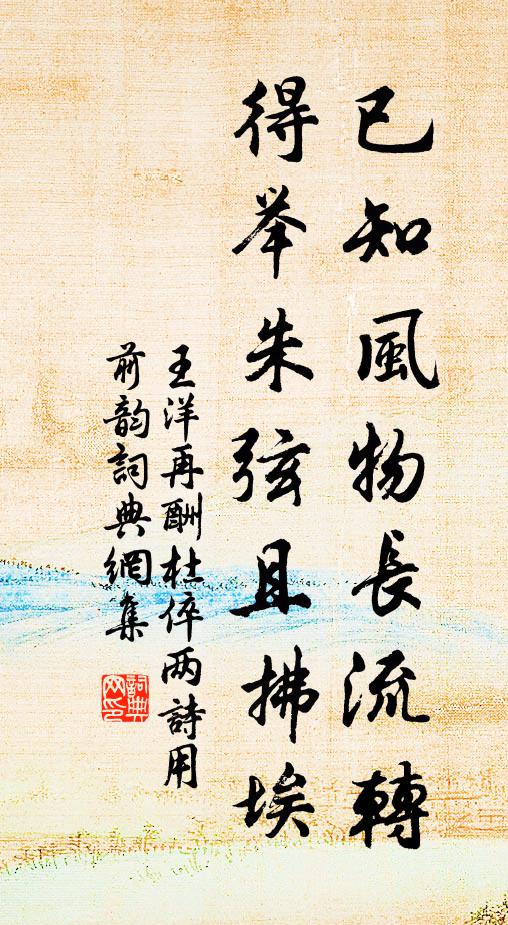 已知風物長流轉
得举朱弦且拂埃
王洋再酬杜倅两詩用
前韵詞典網集
詞典網印